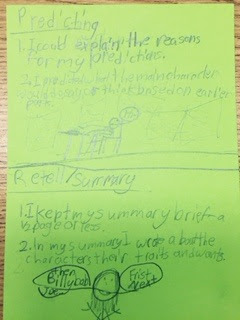 Predicting
1. I could explain the reasons
for my predictions.
I predict what the main character
would say or think based on earlier
Retell/Summary
1. I kept my summary brief-a
½ page or less.
2. In my summary I wrote a bout the
characters their traits and wants.
then
Billy
Joe
Frist